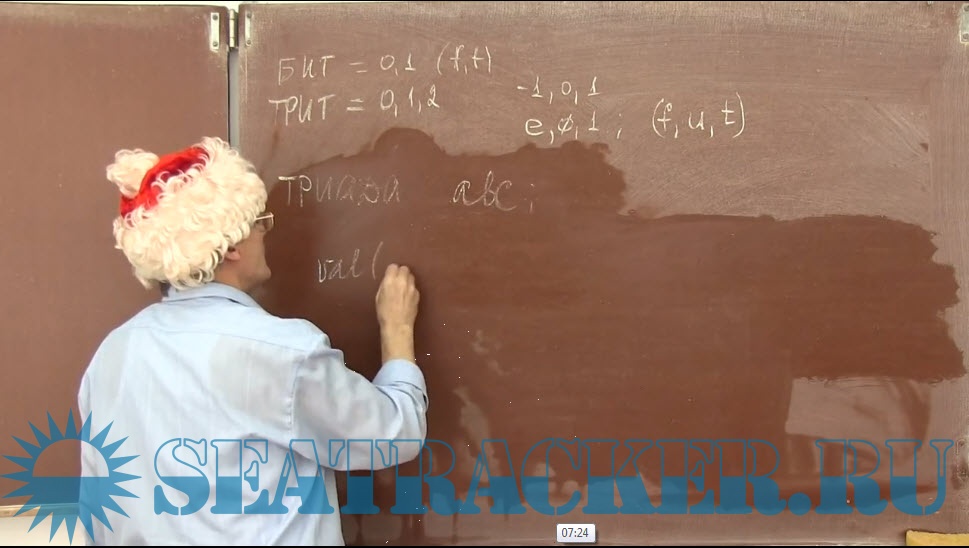 БИТ = 0,1 (f,t)
ТРИТ = 0,1,2
-1,0,1
e,ø,1; (f,u,t)
ТРИАДА abc;
val(
SEATRACKER.RU
07:24